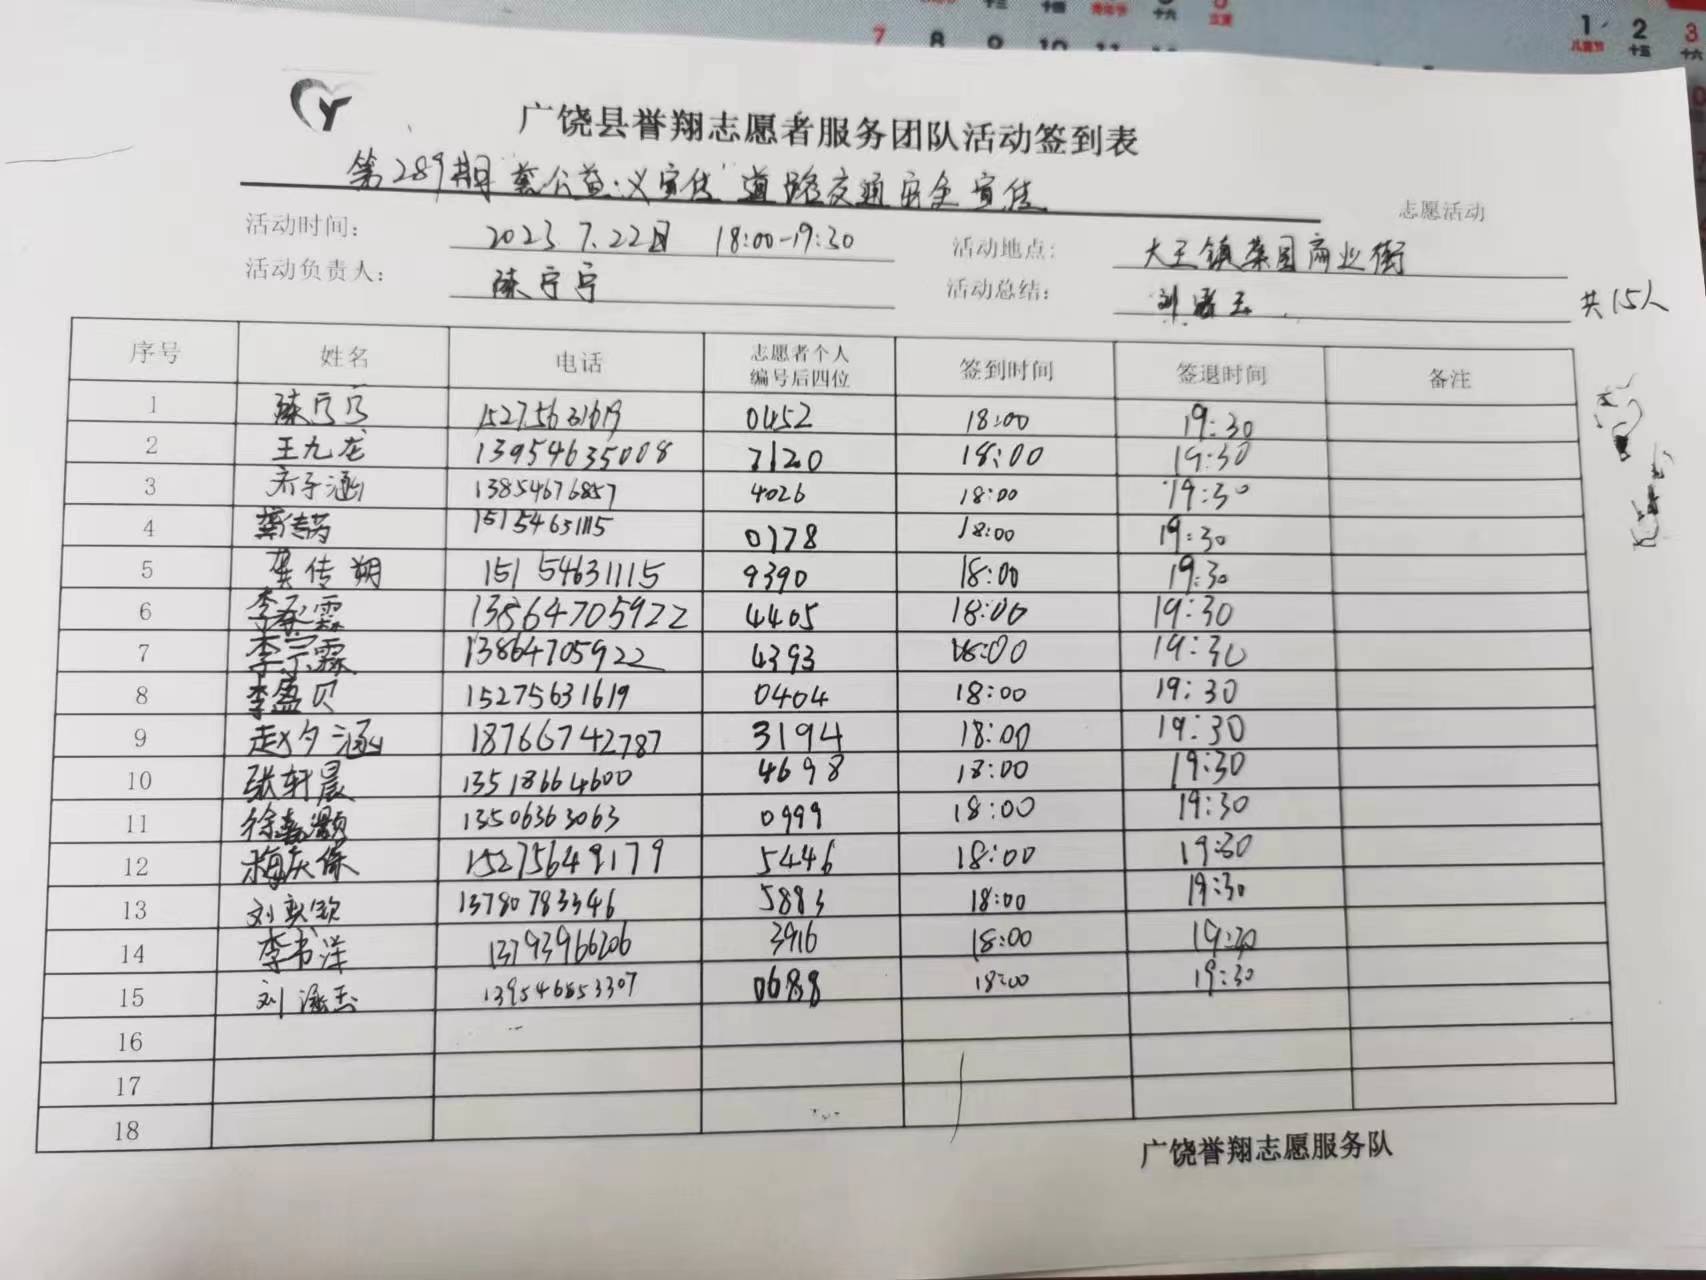 7 8 9 10 11
1 2 3
儿童节 十五 十六
Y
广饶县誉翔志愿者服务团队活动签到表
第289期 公益义宣传 道路交通安全宣传 志愿活动
活动时间: 2023 7.22日 18:00-19:30 活动地点: 大王镇菜园商业街
活动负责人: 陈宁宁 活动总结: 刘 玉 共15人
序号 姓名 电话 志愿者个人编号后四位 签到时间 签退时间 备注
1 陈宁宁 15275631619 0452 18:00 19:30
2 王九龙 13954635008 7120 18:00 19:30
3 齐子涵 13854676857 4026 18:00 19:30
4 龚传芮 15154631115 0178 18:00 19:30
5 龚传翔 15154631115 9390 18:00 19:30
6 李 霖 13864705922 4405 18:00 19:30
7 李宗霖 13864705922 4393 18:00 19:30
8 李盈贝 15275631619 0404 18:00 19:30
9 赵夕涵 18766742787 3194 18:00 19:30
10 张轩晨 13518664600 4698 18:00 19:30
11 徐嘉灏 13506363063 0999 18:00 19:30
12 梅庆保 15275649179 5446 18:00 19:30
13 刘奕欧 13780783346 5883 18:00 19:30
14 李书洋 13793966206 3916 18:00 19:30
15 刘 玉 13954653307 0688 18:00 19:30
16
17
18
广饶誉翔志愿服务队